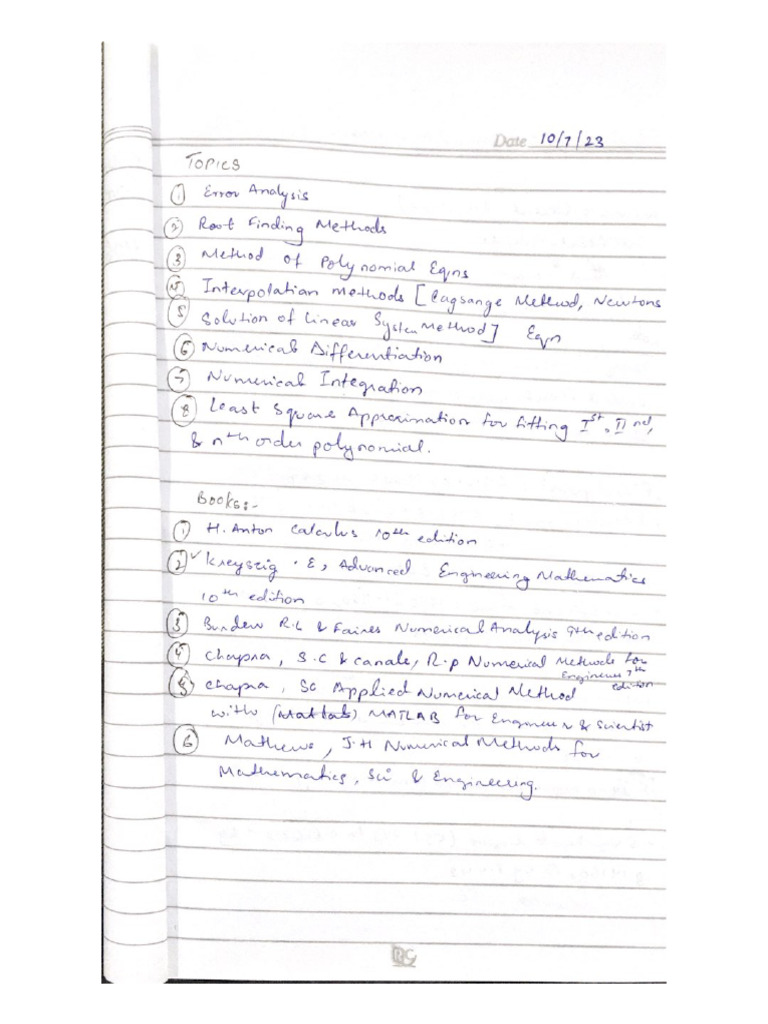 Date 10/7/23
TOPICS
① Error Analysis
② Root Finding Methods
③ Method of Polynomial Eqns
④ Interpolation methods [Lagrange Method, Newtons
⑤ Solution of Linear System Method] Eqn
⑥ Numerical Differentiation
⑦ Numerical Integration
⑧ Least Square Approximation for fitting Ist, IInd,
& nth order polynomial.
Books:-
① H. Anton Calculus 10th edition
② ✓ Kreyszig . E, Advanced Engineering Mathematics
10th edition
③ Burden R.L & Faires Numerical Analysis 9th edition
④ Chapra, S.C & Canale, R.p Numerical Methods for
Engineers 7th
edition
⑤ Chapra, SC Applied Numerical Method
with (Matlab) MATLAB for Engineer & Scientist
⑥ Mathews, J.H Numerical Methods for
Mathematics, Sci & Engineering.